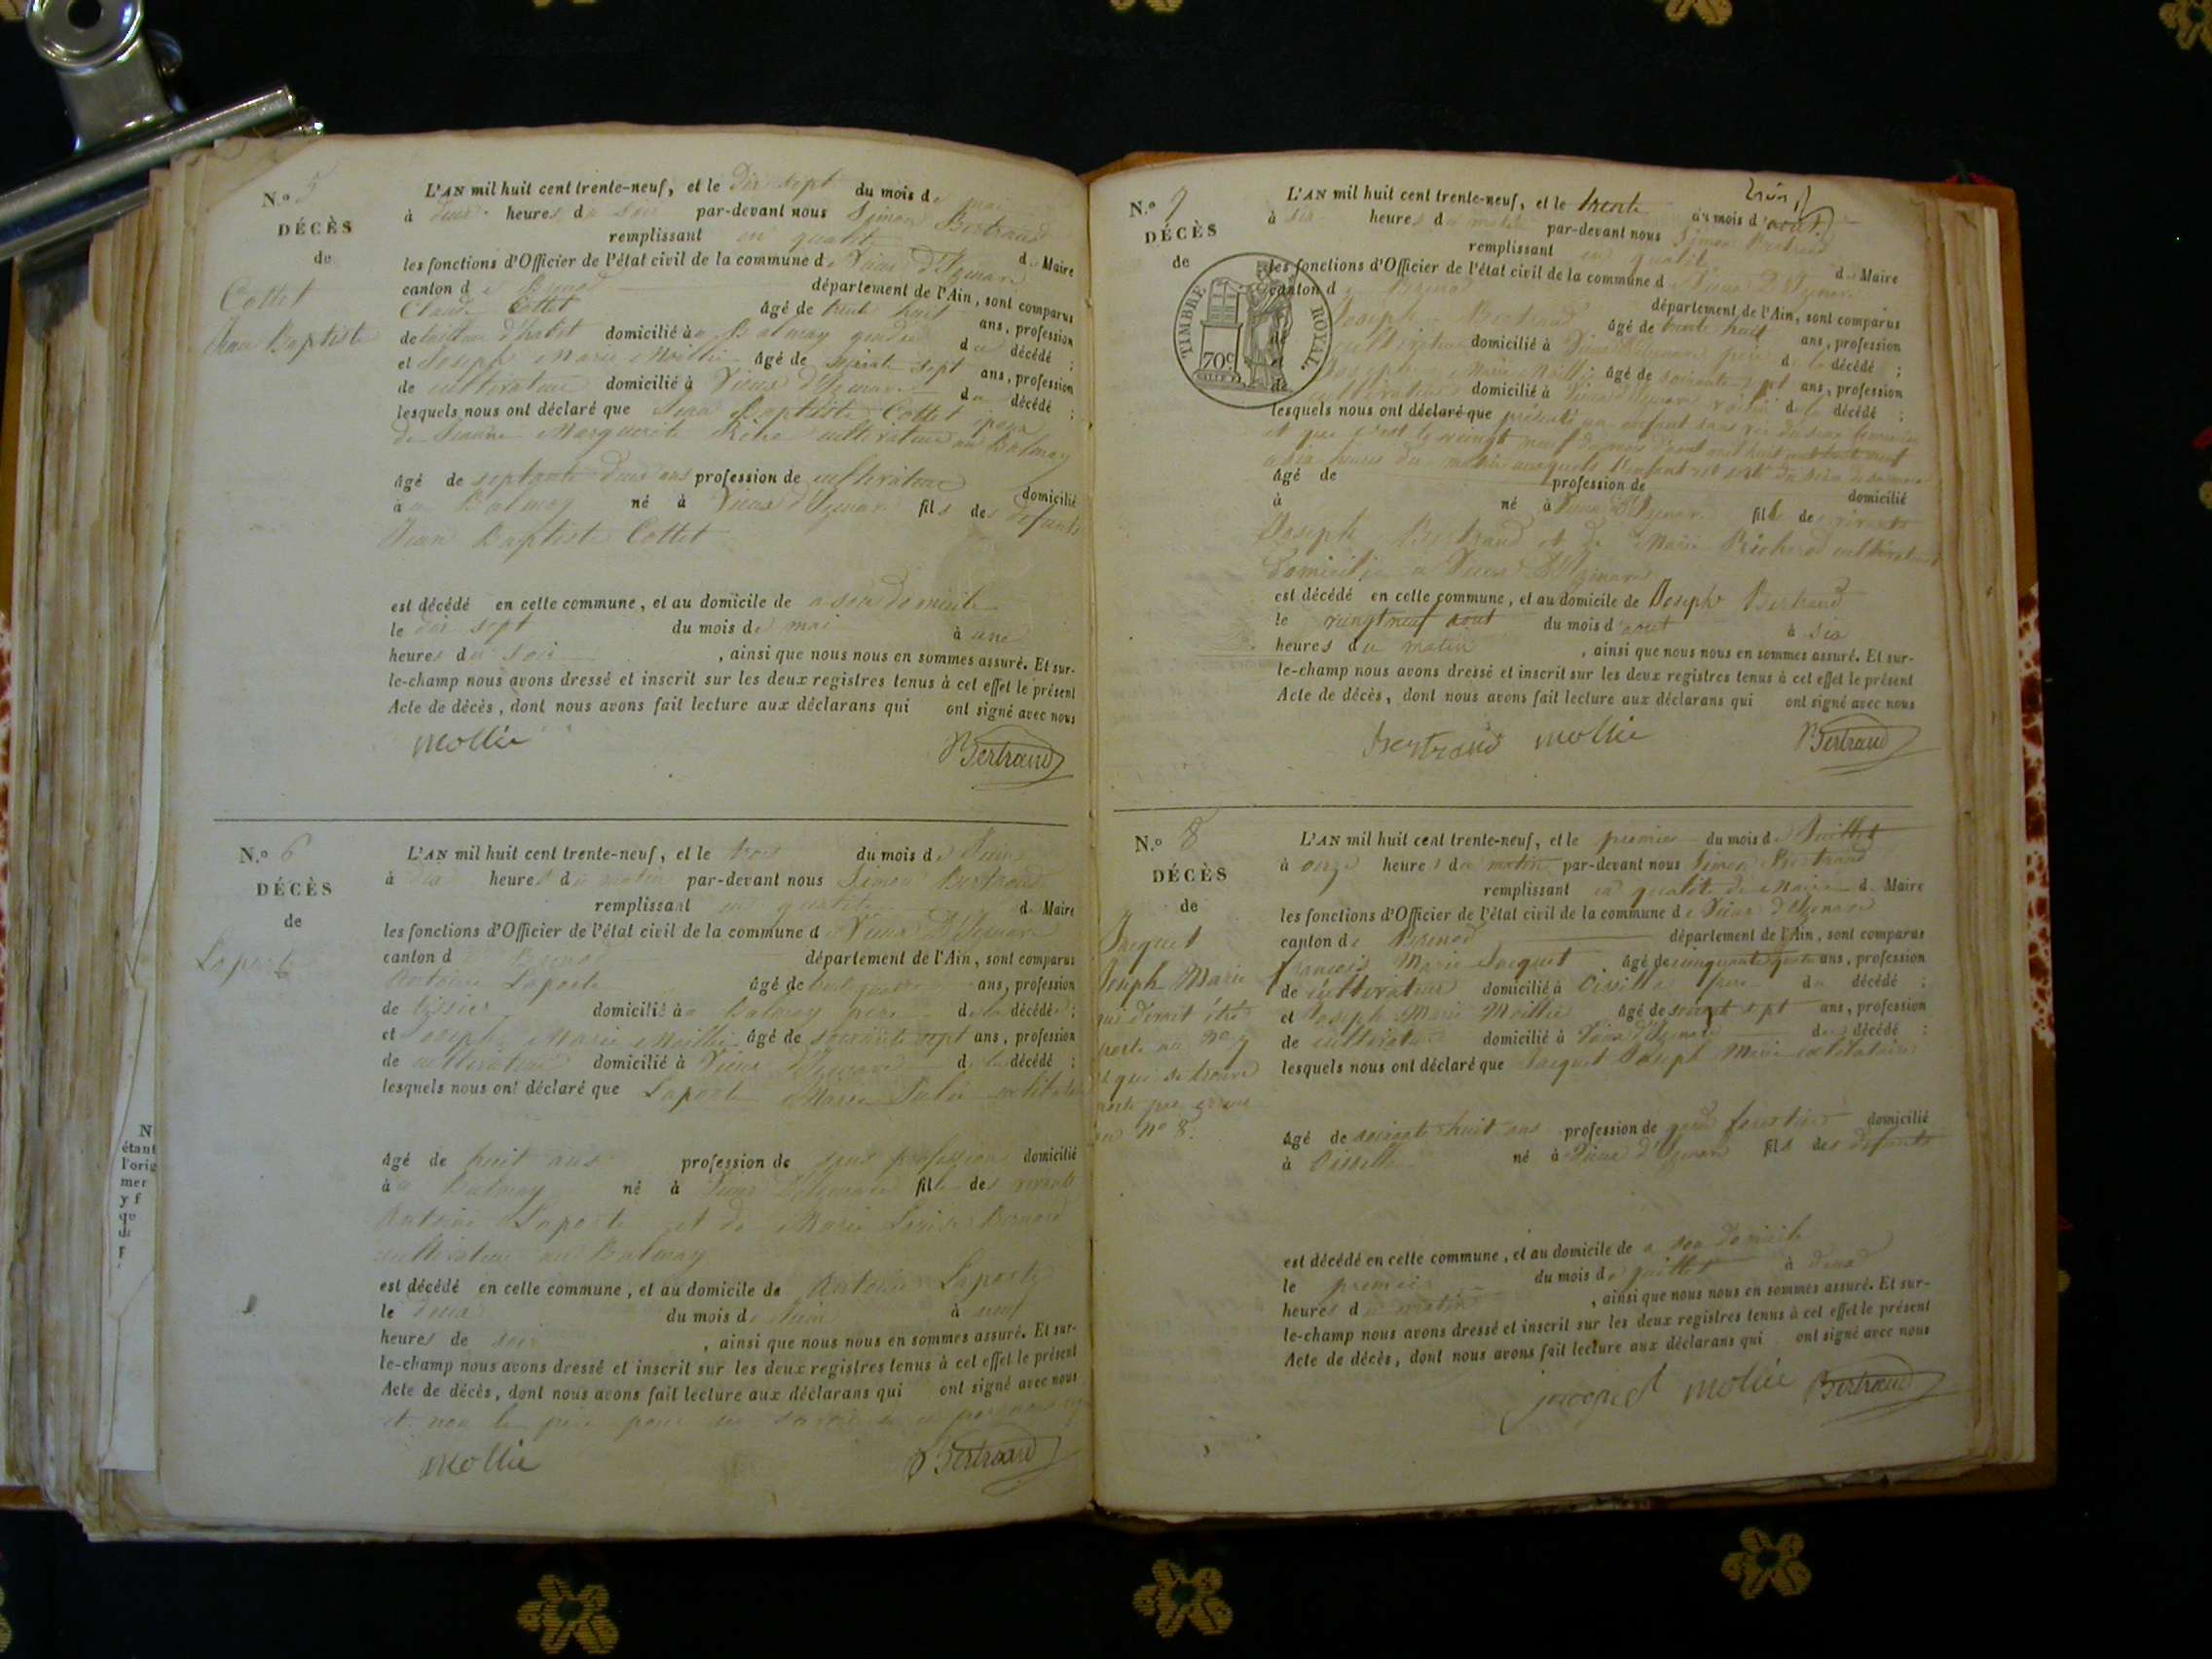 N.º 5
DÉCÈS
de
Cottet
Jean Baptiste
L'AN mil huit cent trente-neuf, et le dix sept du mois de mai
à deux heures du soir par-devant nous Simon Bertrand
remplissant en qualité de Maire
les fonctions d'Officier de l'état civil de la commune de Vieux d'Izenave
canton de Brenod département de l'Ain, sont comparus
Claude Cottet âgé de trente huit ans, profession
de tailleur d'habit domicilié au Balmay du décédé ;
et Joseph Marie Mollie âgé de soixante sept ans, profession
de cultivateur domicilié à Vieux d'Izenave du décédé ;
lesquels nous ont déclaré que Jean Baptiste Cottet époux
de Jeanne Marguerite cultivateur au Balmay
âgé de septante deux ans profession de cultivateur domicilié
au Balmay né à Vieux d'Izenave fils des défunts
Jean Baptiste Cottet
est décédé en cette commune, et au domicile de a son domicile
le dix sept du mois de mai à une
heures du soir , ainsi que nous nous en sommes assuré. Et sur-
le-champ nous avons dressé et inscrit sur les deux registres tenus à cet effet le présent
Acte de décès, dont nous avons fait lecture aux déclarans qui ont signé avec nous
mollie Bertrand
N.º 6
DÉCÈS
de
Laporte
L'AN mil huit cent trente-neuf, et le trois du mois de Juin
à dix heures du matin par-devant nous Simon Bertrand
remplissant en qualité de Maire
les fonctions d'Officier de l'état civil de la commune de Vieux D'Izenave
canton d Brenod département de l'Ain, sont comparus
Antoine Laporte âgé de ans, profession
de tissier domicilié au Balmay père de la décédée ;
et Joseph Marie Mollie âgé de soixante sept ans, profession
de cultivateur domicilié à Vieux D'Izenave de la décédé ;
lesquels nous ont déclaré que Laporte Marie
âgé de huit ans profession de sans profession domicilié
au Balmay né à Vieux D'Izenave fille des vivants
Antoine Laporte et de Marie Louise Bernard
cultivateur au Balmay
est décédé en cette commune, et au domicile de Antoine Laporte
le deux du mois de Juin à neuf
heures de soir , ainsi que nous nous en sommes assuré. Et sur-
le-champ nous avons dressé et inscrit sur les deux registres tenus à cet effet le présent
Acte de décès, dont nous avons fait lecture aux déclarans qui ont signé avec nous
et non le père pour
mollie Bertrand
N
étant
l'orig
mer
y f
N.º 7
DÉCÈS
de
TIMBRE ROYAL.
70c
L'AN mil huit cent trente-neuf, et le trente du mois d'août
à six heures du matin par-devant nous Simon Bertrand
remplissant en qualité de Maire
les fonctions d'Officier de l'état civil de la commune d Vieux D'Izenave
canton d Brenod département de l'Ain, sont comparus
Joseph Bertrand âgé de trente huit ans, profession
de cultivateur domicilié à Vieux D'Izenave père de la décédé ;
et Joseph Marie Mollie âgé de soixante sept ans, profession
de cultivateur domicilié à Vieux D'Izenave voisin de la décédé ;
lesquels nous ont déclaré que présenté un enfant sans vie du sexe féminin
et que c'est le vingt neuf du mois d'aout mil huit cent trente neuf
a six heures du matin l'enfant est sorti du sein de sa mère
âgé de profession de domicilié
à né à Vieux D'Izenave fille des vivants
Joseph Bertrand et de Marie cultivateurs
domiciliés a Vieux D'Izenave
est décédé en cette commune, et au domicile de Joseph Bertrand
le vingt neuf aout du mois d'aout à six
heures du matin , ainsi que nous nous en sommes assuré. Et sur-
le-champ nous avons dressé et inscrit sur les deux registres tenus à cet effet le présent
Acte de décès, dont nous avons fait lecture aux déclarans qui ont signé avec nous
bertrand mollie Bertrand
N.º 8
DÉCÈS
de
Jacquet
Joseph Marie
qui devait être
porté au nº 7
et qui se trouve
porté par erreur
au nº 8.
L'AN mil huit cent trente-neuf, et le premier du mois de Juillet
à onze heures du matin par-devant nous Simon Bertrand
remplissant en qualité de Maire d Maire
les fonctions d'Officier de l'état civil de la commune de Vieux d'Izenave
canton de Brenod département de l'Ain, sont comparus
François Marie Jacquet âgé de cinquante ans, profession
de cultivateur domicilié à du décédé ;
et Joseph Marie Mollie âgé de soixante sept ans, profession
de cultivateur domicilié à Vieux d'Izenave du décédé ;
lesquels nous ont déclaré que Jacquet Joseph Marie
âgé de soixante huit ans profession de garde forestier domicilié
à né à Vieux d'Izenave fils des défunts
est décédé en cette commune, et au domicile de a son domicile
le premier du mois de juillet à deux
heures du matin , ainsi que nous nous en sommes assuré. Et sur-
le-champ nous avons dressé et inscrit sur les deux registres tenus à cet effet le présent
Acte de décès, dont nous avons fait lecture aux déclarans qui ont signé avec nous
jacquet mollie Bertrand